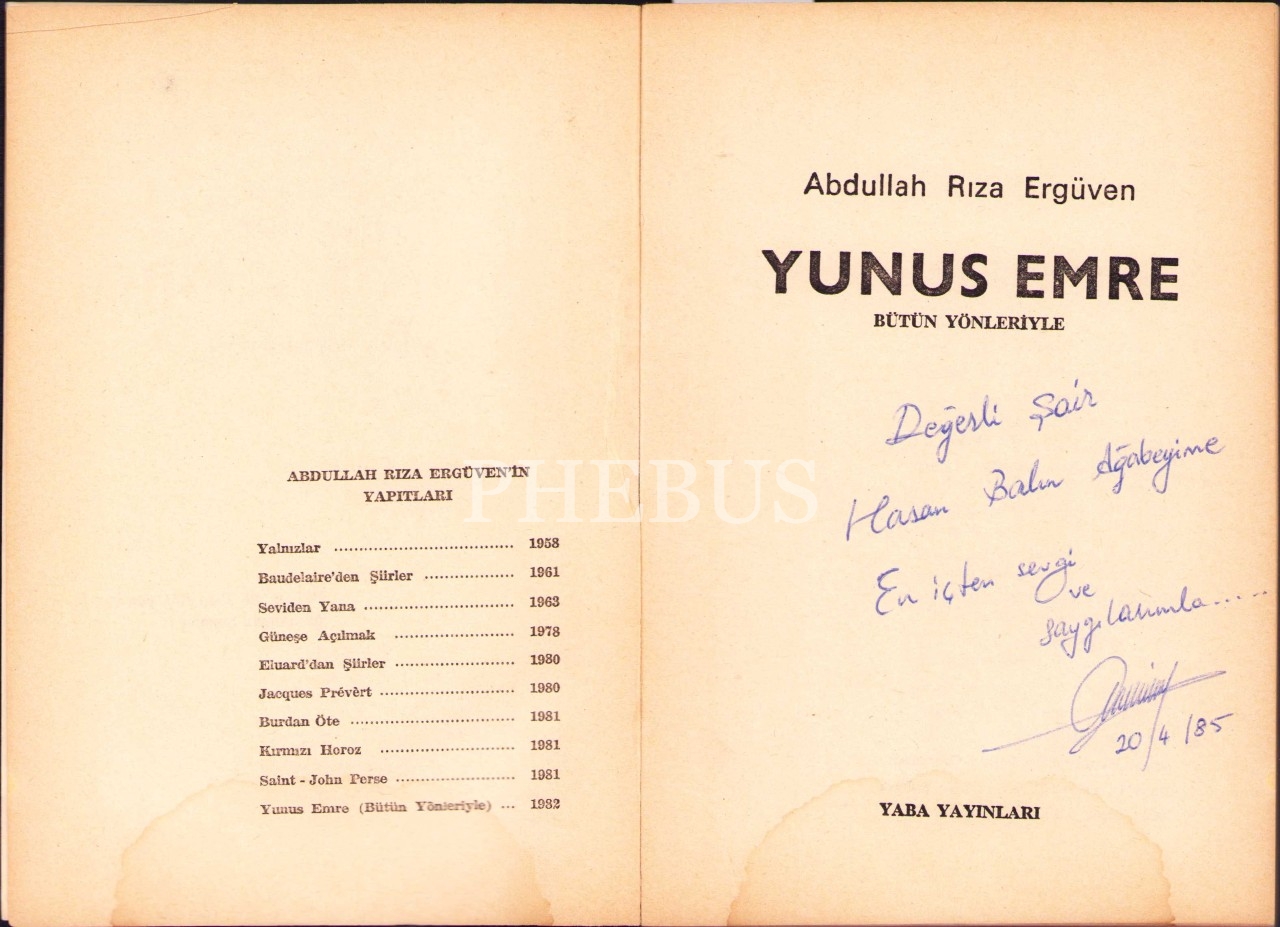 ABDULLAH RIZA ERGÜVEN'İN
YAPITLARI
Yalnızlar .................................... 1958
Baudelaire'den Şiirler .................. 1961
Seviden Yana .............................. 1963
Güneşe Açılmak ........................ 1978
Eluard'dan Şiirler ........................ 1980
Jacques Prévèrt ........................... 1980
Burdan Öte ................................. 1981
Kırmızı Horoz ........................... 1981
Saint - John Perse ........................ 1981
Yunus Emre (Bütün Yönleriyle) ... 1982
PHEBUS
Abdullah Rıza Ergüven
YUNUS EMRE
BÜTÜN YÖNLERİYLE
Değerli Şair
Hasan Balın Ağabeyime
En içten sevgi
ve
saygılarımla......
20/4/85
YABA YAYINLARI